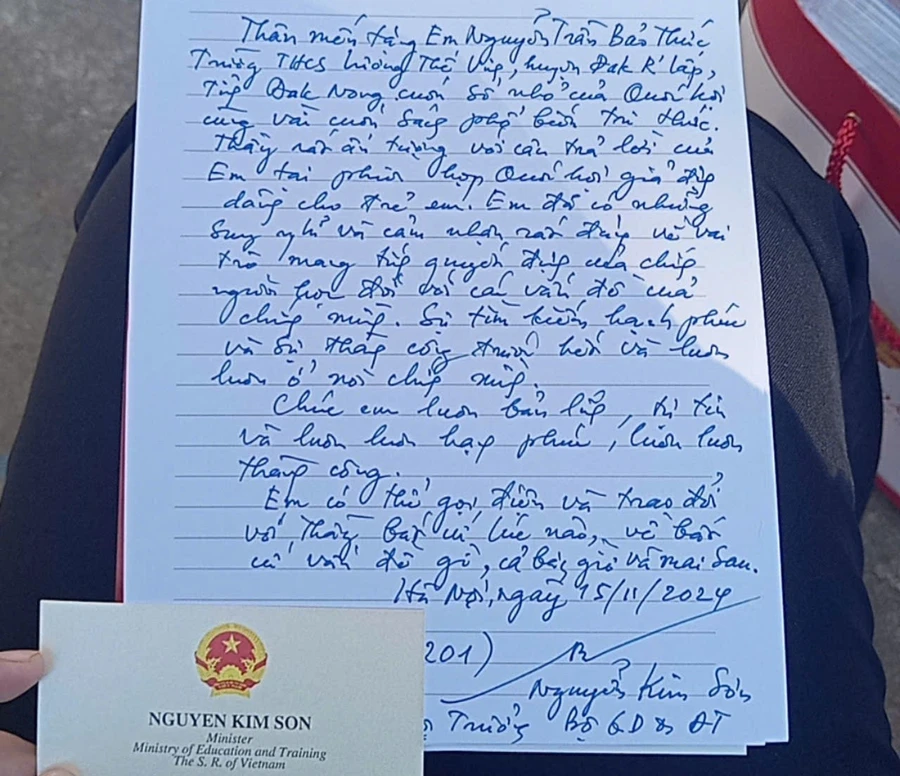 Thân mến tặng Em Nguyễn Trần Bảo Thức
Trường THCS Lương Thế Vinh, huyện Đak R'lấp,
Tỉnh Đak Nong cuốn sổ nhỏ của Quốc hội
cùng vài cuốn sách phổ biến tri thức.
Thầy rất ấn tượng với câu trả lời của
Em tại phiên họp Quốc hội giả định
dành cho trẻ em. Em đã có những
suy nghĩ và cảm nhận rất đúng về vai
trò mang tính quyết định của chính
người học đối với các vấn đề của
chính mình. Sự tìm kiếm hạnh phúc
và sự thành công trước hết và luôn
luôn ở nơi chính mình.
Chúc em luôn bản lĩnh, tự tin
và luôn luôn hạnh phúc, luôn luôn
thành công.
Em có thể gọi điện và trao đổi
với Thầy bất cứ lúc nào, về bất
cứ vấn đề gì, cả bây giờ và mai sau.
Hà Nội, ngày 15/11/2024
201)
Nguyễn Kim Sơn
Trưởng Bộ GD & ĐT
NGUYEN KIM SON
Minister
Ministry of Education and Training
The S. R. of Vietnam